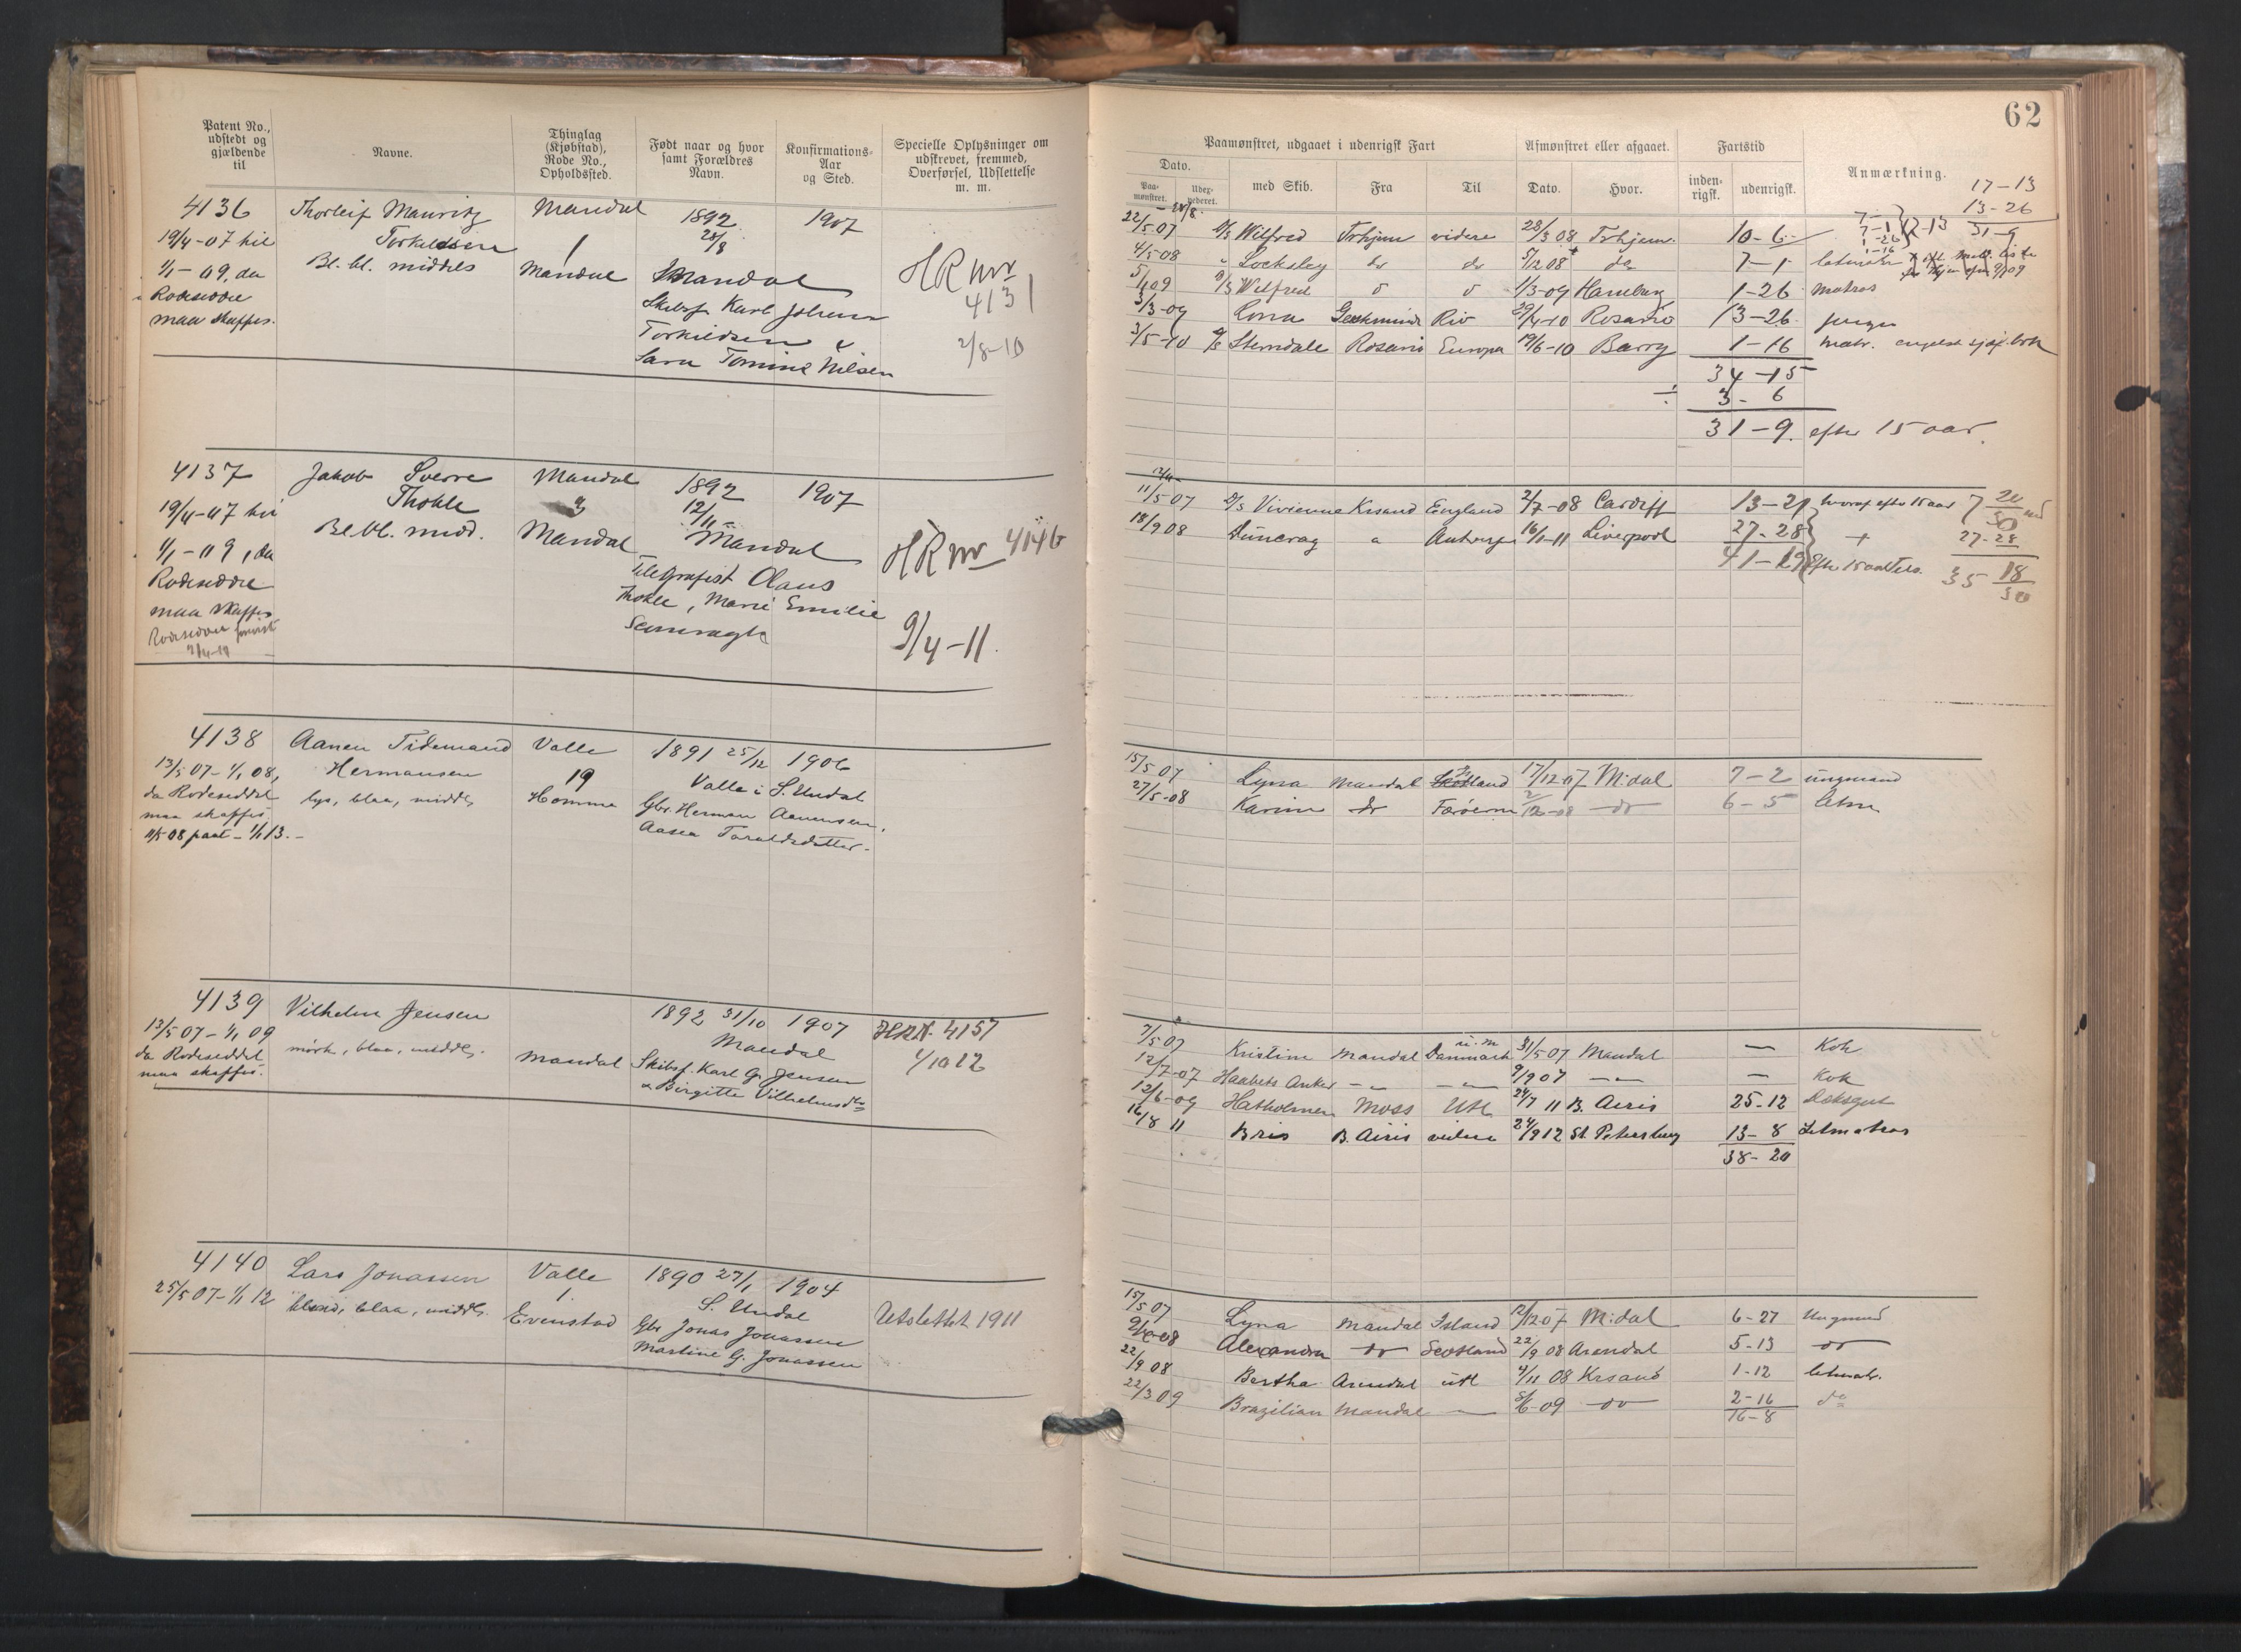 62
Patent No., udstedt og gjældende til
Navne.
Thinglag (Kjøbstad), Rode No., Opholdssted.
Født naar og hvor samt Forældres Navn.
Konfirmations-Aar og Sted.
Specielle Oplysninger om udskrevet, fremmed, Overførsel, Udslettelse m. m.
4136 Thorleif Mauritz Mandal 1892 1907
19/4-07 til Torkildsen 1 28/8
1/1-09, da Bl. bl. middels Mandal Mandal HR nr
Rodeseddel Skibsf. Karl Johan 4131
maa skaffes. Torkildsen &
Sara Tomine Nilsen 2/8-10
4137 Jakob Sverre Mandal 1892 1907
19/4-07 til Thokle 3 12/11
1/1-09, da Bl. bl. midd. Mandal Mandal HR nr 4146
Rodeseddel Telegrafist Olaus
maa skaffes Thokle, Marie Emilie
Rodeseddel
9/4-11.
4138 Aanen Tidemand Valle 1891 25/12 1906
13/5 07-1/1 08, Hermansen 19 Valle i S. Undal
da Rodeseddel lys, blaa, middls Homme Gbr. Herman Aanensen,
maa skaffes. Aasea Taraldsdatter.
11/5 08 paat - 1/1 13.
4139 Vilhelm Jensen 1892 31/10 1907 HRN. 4157
13/5 07-1/1 09 Mandal 4/10 12
da Rodeseddel mørk, blaa, middls. Mandal Skibsf. Karl G. Jensen
maa skaffes. & Birgitte Vilhelmsdtr
4140 Lars Jonassen Valle 1890 27/1 1904
25/5 07-1/1 12 blond, blaa, middls. 1. S. Undal
Evenstad Gbr Jonas Jonassen Utslettet 1911
Martine G. Jonassen
Paamønstret, udgaaet i udenrigsk Fart
Afmønstret eller afgaaet.
Fartstid
Anmærkning.
Dato.
Paa-mønstret.
med Skib.
Fra
Til
Dato.
Hvor.
inden-rigsk.
udenrigsk.
17-13
13-26
31-9
22/5-07 D/S Wilfred Trhjem videre 28/3 08 Trhjem. 10-6
4/5-08 " Locksley do do 5/12 08 do 7-1
5/1 09 D/S Wilfred 1/3-09 Hamburg 1-26 Matros
3/3-09 Rona Rio 29/4-10 Rosario 13-26
3/5-10 Sterndale Rosario Europa 19/6-10 Barry 1-16 matr. engelsk
34-15
÷ 3-6
31-9. efter 15 aar.
11/5 07 D/S Vivienne Krsand England 2/7-08 Cardiff 13-21 hvoraf efter 15 aar
18/9 08 Duncrag 16/1-11 Liverpool 27-28 27-28
41-19
15/5 07 Lyna Mandal 17/12 07 M:dal 7-2 ungmand
27/5-08 Karine do Færøerne do 6-5
7/5 07 Kristine Mandal Danmark 31/5 07 Mandal — Kok
12/7-07 Haabets Anker -"- -"- 9/9 07 -"- — Kok
12/6-09 Hatholmen Moss Utl. 24/7 11 B. Airis 25-12 Dæksgut
16/8 11 Bris B. Airis 24/9 12 St. Petersburg 13-8 Letmatros
38-20
15/5 07 Lyna Mandal Island M:dal 6-27 Ungmd
Alexandra do Scotland 22/9 08 Arendal 5-13 do
22/9 08 Bertha Arendal utl 4/11 08 Krsand 1-12 letmatr.
22/3 09 Brazilian Mandal — do 2-16 do
16-8